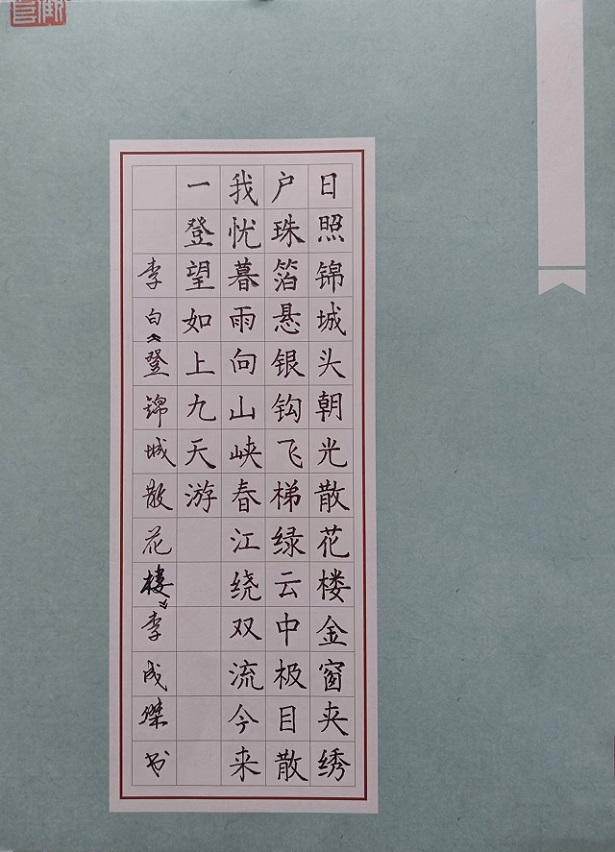 日照锦城头朝光散花楼金窗夹绣
户珠箔悬银钩飞梯绿云中极目散
我忧暮雨向山峡春江绕双流今来
一登望如上九天游
李白《登锦城散花楼》李成杰书